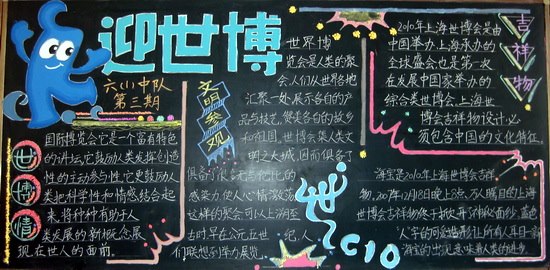 迎世博
六(1)中队
第三期
世博情
国际博览会它是一个富有特色
的讲坛,它鼓励人类发挥创造
性的主动参与性,它更鼓励人
类把科学性和情感结合起
来,将种种有助于人
类发展的新概念展
现在世人的面前。
文明参观
世界博
览会是人类的聚
会,人们从世界各地
汇聚一处,展示各自的产
品与技艺,
和祖国。世博会集人类文
明之大成,因而俱备了
俱备了
感染力,使人心情激荡
这样的聚会可以上溯至
古时早在公元五世纪,人
们联想到举力展览。
世2010
2010年上海世博会是由
中国举办,上海承办的
全球盛会也是第一次
在发展中国家举办的
综合类世博会,上海世
博会吉祥物设计必
须包含中国的文化特征。
吉祥物
海宝是2010年上海世博会吉祥
物。2007年12月18日晚上8点,万人瞩目的上海
世博会吉祥物终于掀开神秘面纱,蓝色
“人”字的可爱造形让所有人耳目一新
海宝的出现意味着人类的进步